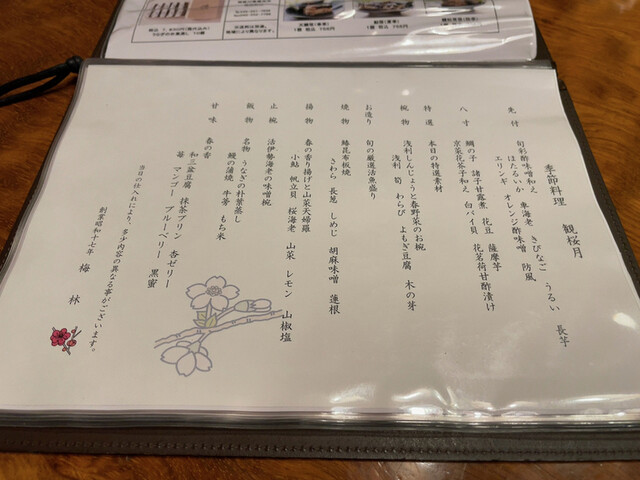 季節料理　観桜月
先付　旬彩酢味噌和え
ほたるいか　車海老　きびなご　うるい　長芋
エリンギ　オレンジ酢味噌　防風
八寸　鯛の子　諸子甘露煮　花豆　薩摩芋
京菜花芥子和え　白バイ貝　花茗荷甘酢漬け
特選　本日の特選素材
椀物　浅利しんじょうと春野菜のお椀
浅利　筍　わらび　よもぎ豆腐　木の芽
お造り　旬の厳選活魚盛り
焼物　鰆昆布板焼
さわら　長葱　しめじ　胡麻味噌　蓮根
揚物　春の香り揚げと山菜天婦羅
小鮎　帆立貝　桜海老　山菜　レモン　山椒塩
止椀　活伊勢海老の味噌椀
飯物　名物　うなぎの朴葉蒸し
鰻の蒲焼　牛蒡　もち米
甘味　春の香
和三盆豆腐　抹茶プリン　杏ゼリー
苺　マンゴー　ブルーベリー　黒蜜
当日の仕入れにより、多少内容の異なる事がございます。
創業昭和十七年　梅林